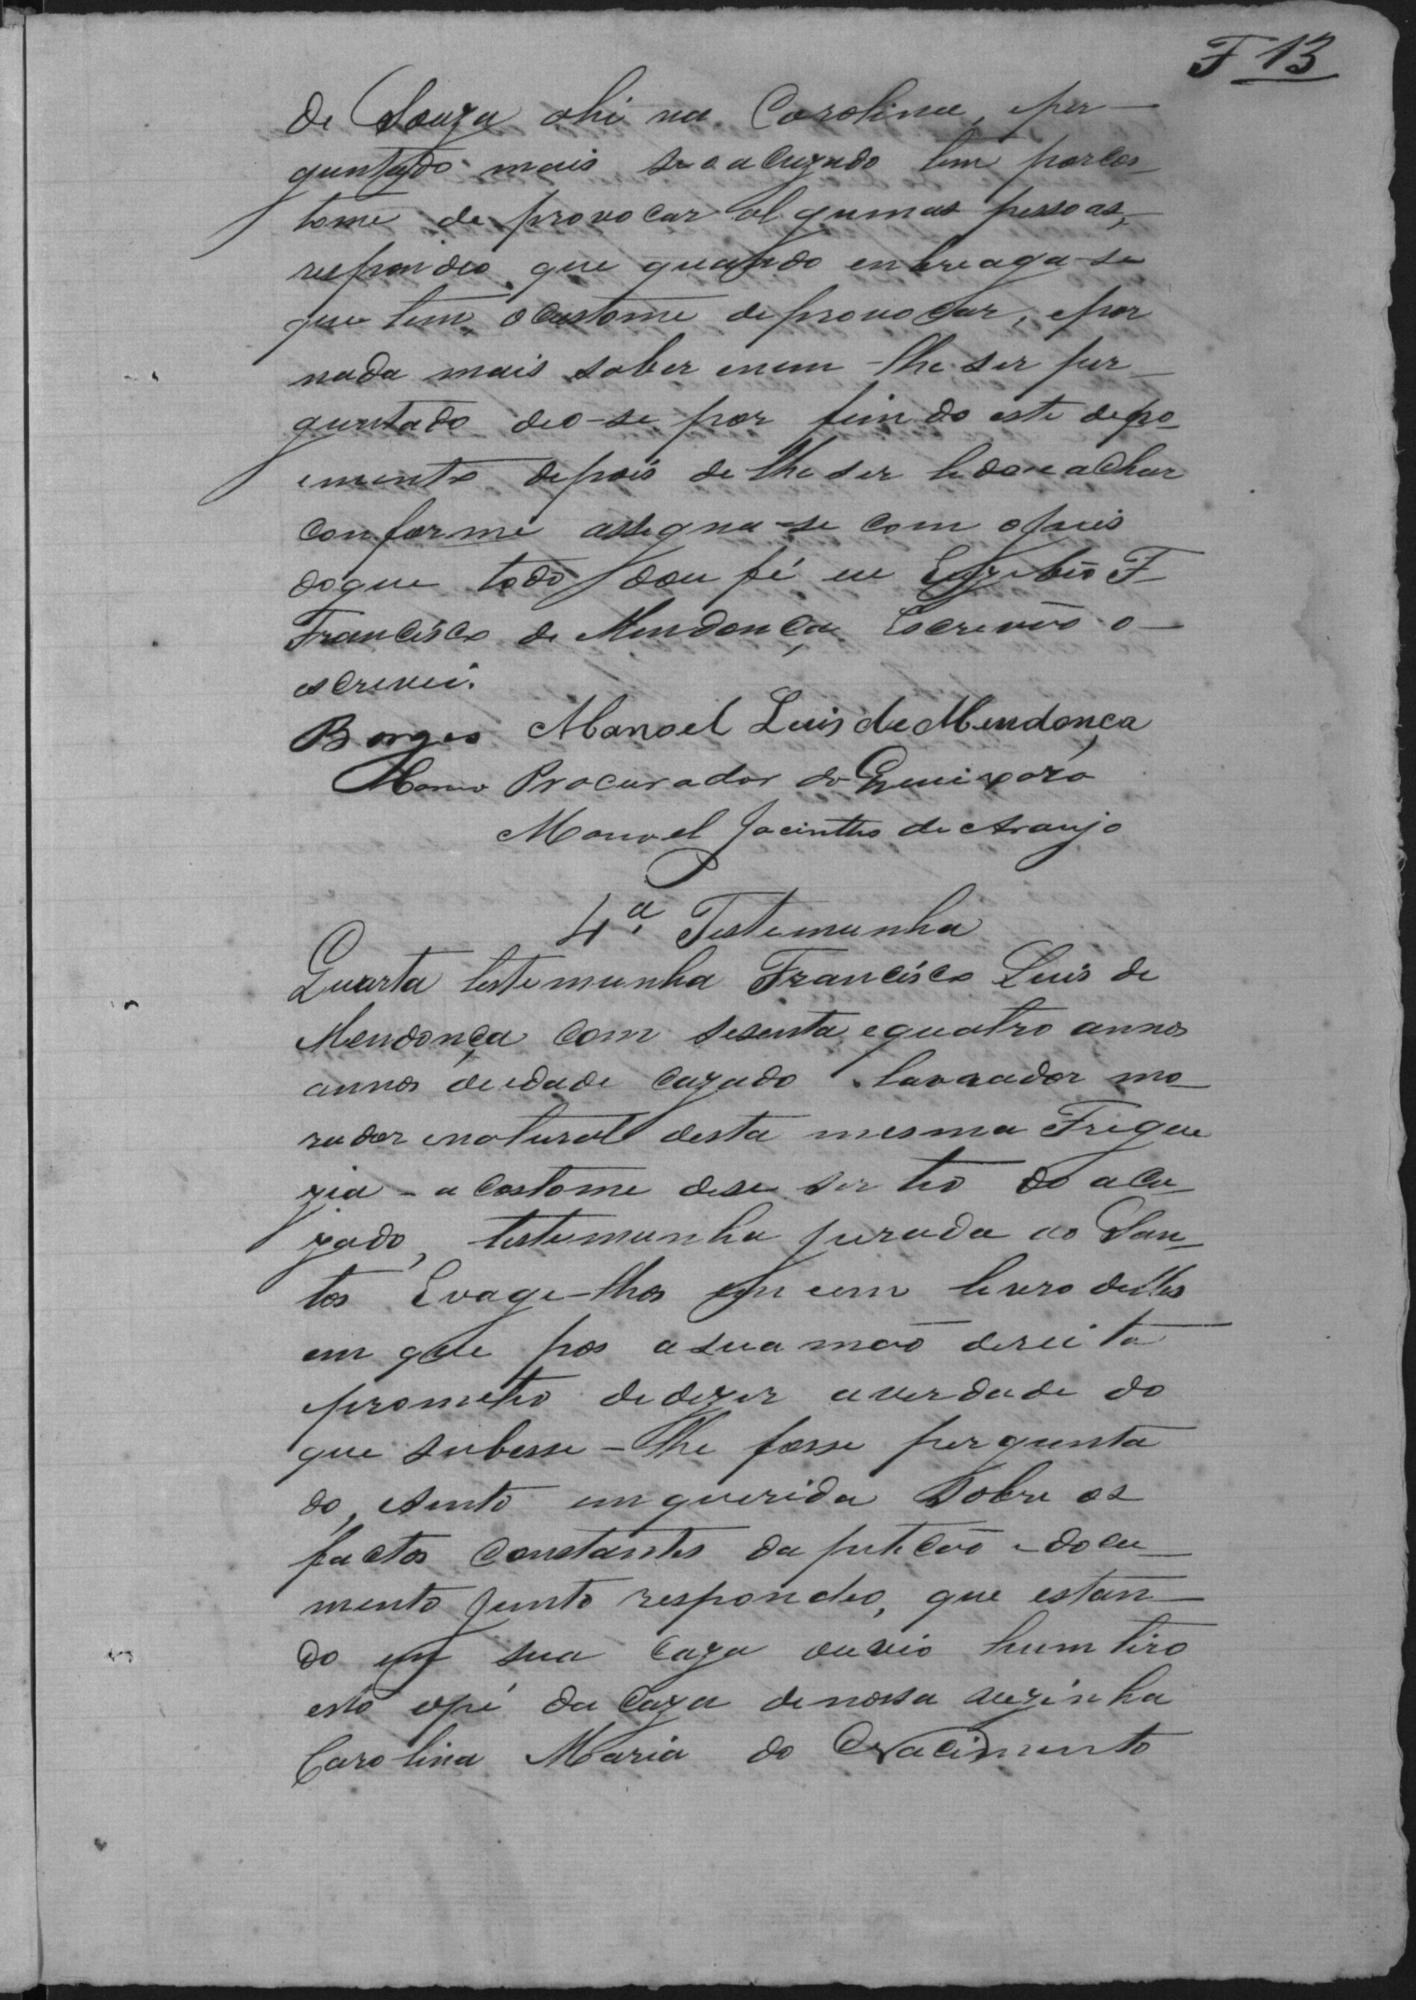 F 13
de Souza ahi na Carolina, eper-
guntado mais se o acuzado tem porcos-
tome de provocar algumas pessoas,
respondeo que quando enbreaga-se
que tem o custome deprovocar, epor
nada mais saber enem-lhe ser per-
guntado deo-se por findo este depo-
emento depois de lhe ser lido e achar
conforme assegna-se com o juis
doque todo dou fé eu Euzebio F
Francisco de Mendonça Escrevão o
escrevei.
Borges Manoel Luis de Mendonça
Como Procurador do
Manoel Jacintho de Araujo
4ª Testemunha
Quarta testemunha Francisco Luis de
Mendonça com sesenta equatro annos
annos deidade cazado lavrador mo-
rador enatural desta mesma Fregue
zia - a costome dise ser tio do acu-
zado, testemunha jurada ao San-
tos Evage-lhos em um livro delles
em que pos asuamão dereita
eprometeo dedezer averdade do
que subesse-lhe fosse pergunta
do, esento enquerida sobre os
factos constantes da petecão edocu-
mento junto respondeo, que estan-
do em sua caza ouvio hum tiro
esto opé da caza denossa vezinha
Carolina Maria do Nacimento